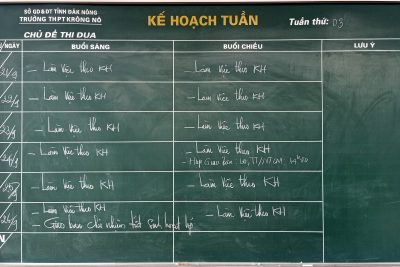 SỞ GD&ĐT TỈNH ĐĂK NÔNG
TRƯỜNG THPT KRÔNG NÔ
KẾ HOẠCH TUẦN
Tuần thứ: 03
CHỦ ĐỀ THI ĐUA
/NGÀY
BUỔI SÁNG
BUỔI CHIỀU
LƯU Ý
21/9
- Làm việc theo KH
- Làm việc theo KH
22/9
- Làm việc theo KH
- Làm việc theo KH
23/9
- Làm việc theo KH
- Làm việc theo KH
24/9
- Làm việc theo KH
- Làm việc theo KH
- Họp Giao ban:
25/9
- Làm việc theo KH
- Làm việc theo KH
26/9
- Làm việc theo KH
- Giáo viên chủ nhiệm sinh hoạt lớp
- Làm việc theo KH
N